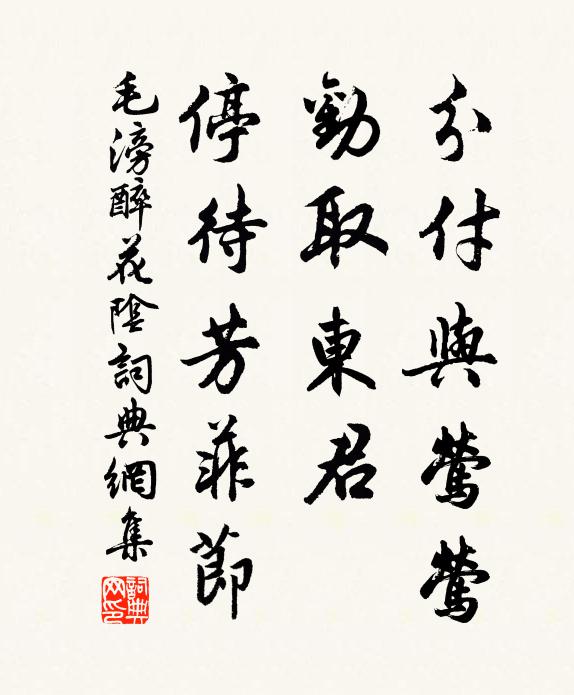 分付與鶯鶯
勸取東君
停待芳菲節
毛滂醉花陰詞典網集
詞典網印